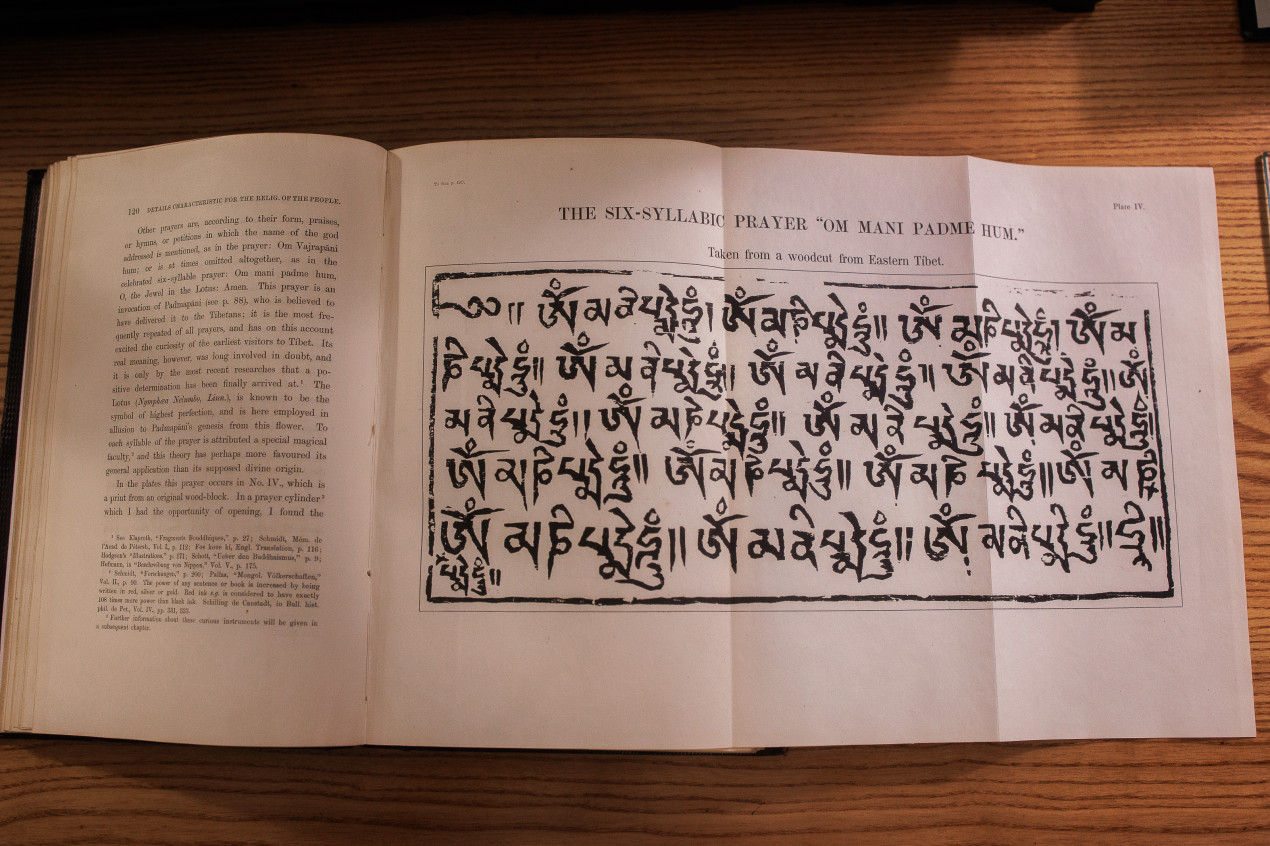 120 DETAILS CHARACTERISTIC FOR THE RELIG. OF THE PEOPLE.
Other prayers are, according to their form, praises,
or hymns, or petitions in which the name of the god
addressed is mentioned, as in the prayer: Om Vajrapāni
hum; or is at times omitted altogether, as in the
celebrated six-syllable prayer: Om mani padme hum,
O, the Jewel in the Lotus: Amen. This prayer is an
invocation of Padmapāni (see p. 88), who is believed to
have delivered it to the Tibetans; it is the most fre-
quently repeated of all prayers, and has on this account
excited the curiosity of the earliest visitors to Tibet. Its
real meaning, however, was long involved in doubt, and
it is only by the most recent researches that a po-
sitive determination has been finally arrived at.¹ The
Lotus (Nymphæa Nelumbo, Linn.), is known to be the
symbol of highest perfection, and is here employed in
allusion to Padmapāni's genesis from this flower. To
each syllable of the prayer is attributed a special magical
faculty,² and this theory has perhaps more favoured its
general application than its supposed divine origin.
In the plates this prayer occurs in No. IV., which is
a print from an original wood-block. In a prayer cylinder³
which I had the opportunity of opening, I found the
¹ See Klaproth, "Fragmens Bouddhiques," p. 27; Schmidt, Mém. de
l'Acad. de Pétersb., Vol. I., p. 112; Foe koue ki, Engl. Translation, p. 116;
Hodgson's "Illustrations," p. 171; Schott, "Ueber den Buddhaismus," p. 9;
Hofmann, in "Beschreibung von Nippon," Vol. V., p. 175.
² Schmidt, "Forschungen," p. 200; Pallas, "Mongol. Völkerschaften,"
Vol. II., p. 90. The power of any sentence or book is increased by being
written in red, silver or gold. Red ink e.g. is considered to have exactly
108 times more power than black ink. Schilling de Canstadt, in Bull. hist.
phil. de Pét., Vol. IV., pp. 331, 333.
³ Further information about these curious instruments will be given in
a subsequent chapter.
Plate IV.
THE SIX-SYLLABIC PRAYER "OM MANI PADME HUM."
Taken from a woodcut from Eastern Tibet.
༄།། ཨོཾ མ ནི པདྨེ ཧཱུྃ། ཨོཾ མ ཎི པདྨེ ཧཱུྃ།། ཨོཾ མ ཎི པདྨེ ཧཱུྃ། ཨོཾ མ
ཎི པདྨེ ཧཱུྃ།། ཨོཾ མ ནི པདྨེ ཧཱུྃ།། ཨོཾ མ ནི པདྨེ ཧཱུྃ།། ཨོཾ མ ནི པདྨེ ཧཱུྃ།། ཨོཾ
མ ནི པདྨེ ཧཱུྃ།། ཨོཾ མ ཎི པདྨེ ཧཱུྃ།། ཨོཾ མ ནི པདྨེ ཧཱུྃ།། ཨོཾ མ ནི པདྨེ ཧཱུྃ།
ཨོཾ མ ཎི པདྨེ ཧཱུྃ།། ཨོཾ མ ཎི པདྨེ ཧཱུྃ།། ཨོཾ མ ཎི པདྨེ ཧཱུྃ།། ཨོཾ མ ཎི
ཨོཾ མ ཎི པདྨེ ཧཱུྃ།། ཨོཾ མ ནི པདྨེ ཧཱུྃ།། ཨོཾ མ ནི པདྨེ ཧཱུྃ།། ཧྲཱི།།
པདྨེ ཧཱུྃ།།